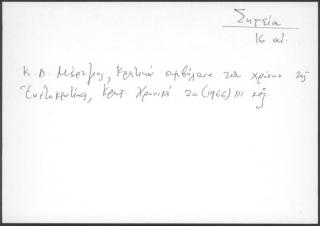 Σητεία
16 αι.
Κ. Δ. Μέρτζιος, Κρητικά συμβόλαια των χρόνων της
Ενετοκρατίας, Κρητ. Χρονικά 20 (1966) 111 κεξ.